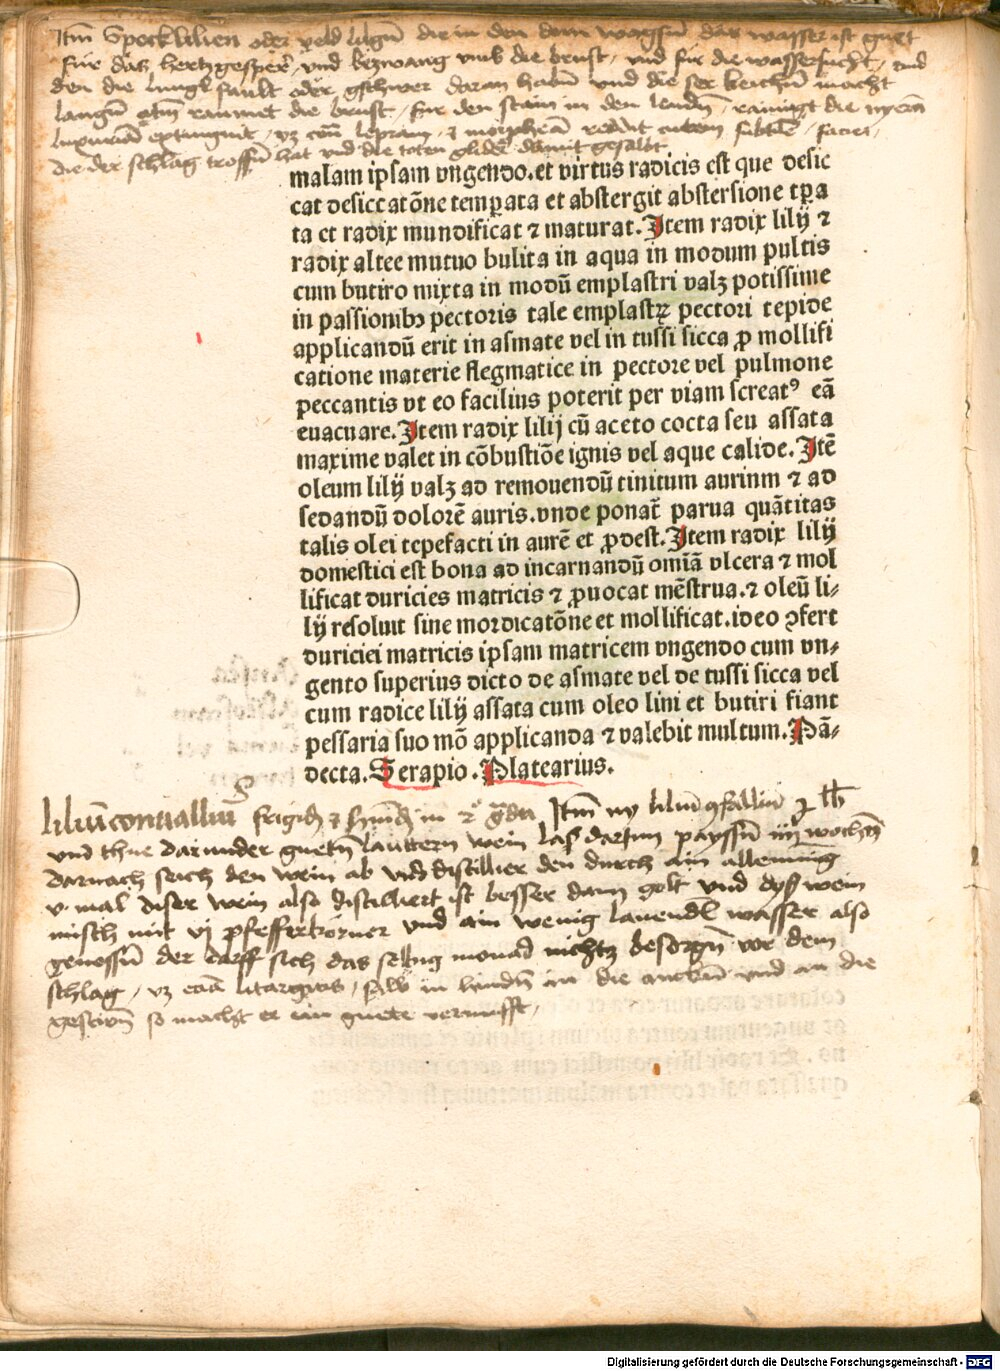 Itm Specklilien oder veld lilgn die in den dorn wagssn das wasser ist guet
für das hertzgesper, und bezwang umb die brust, und für die wassersucht, und
den die lungk fault oder gschwer daran habn und die ser keichen macht
langen atm raumet die brust, für den stain in den lenden, rainigt die nyern
luxuriam extinguit, lepram, ⁊ morpheam cutem subtile faciei,
die der schlag troffen hat und die toten glider damit gesalbt
malam ipsam vngendo.et virtus radicis est que desic
cat desiccatōne temꝑata et abstergit abstersione tꝑa
ta et radix mundificat ⁊ maturat.Item radix lilij ⁊
radix altee mutuo bulita in aqua in modum pultis
cum butiro mixta in modū emplastri valꝫ potissime
in passionibꝰ pectoris tale emplastꝝ pectori tepide
applicandū erit in asmate vel in tussi sicca ꝓ mollifi
catione materie flegmatice in pectore vel pulmone
peccantis vt eo facilius poterit per viam screatꝰ eā
euacuare.Item radix lilij cū aceto cocta seu assata
maxime valet in cōbustiōe ignis vel aque calide.Itē
oleum lilij valꝫ ad remouendū tinitum aurium ⁊ ad
sedandū dolorē auris.vnde ponat̄ parua quātitas
talis olei tepefacti in aurē et ꝓdest.Item radix lilij
domestici est bona ad incarnandū omīa vlcera ⁊ mol
lificat duricies matricis ⁊ ꝓuocat mēstrua.⁊ oleū li⸗
lij resoluit sine mordicatōne et mollificat.ideo ꝯfert
duriciei matricis ipsam matricem vngendo cum vn⸗
gento superius dicto de asmate vel de tussi sicca vel
cum radice lilij assata cum oleo lini et butiri fiant
pessaria suo mō applicanda ⁊ valebit multum.Pā⸗
decta.Serapio.Platearius.
liliū conualliū frigid ⁊ humid in 2° gradu Itm ny liliū ꝯfalliū lb
und thue darunder guetn lauttern wein las dartun payssn iiij wochen
darnach seich den wein ab und distillier den durch ain allemnig
v mal diser wein also distilliert ist besser dann golt und dysß wein
misch mit vj pfefferkörner und ain wenig lauendl wasser also
genossn der darff sich das selbig monad nichtz besorgn vor dem
schlag, litargias, salb in hinden an die ancken und an die
gestirn so macht er ain guete vernufft,
Digitalisierung gefördert durch die Deutsche Forschungsgemeinschaft - DFG